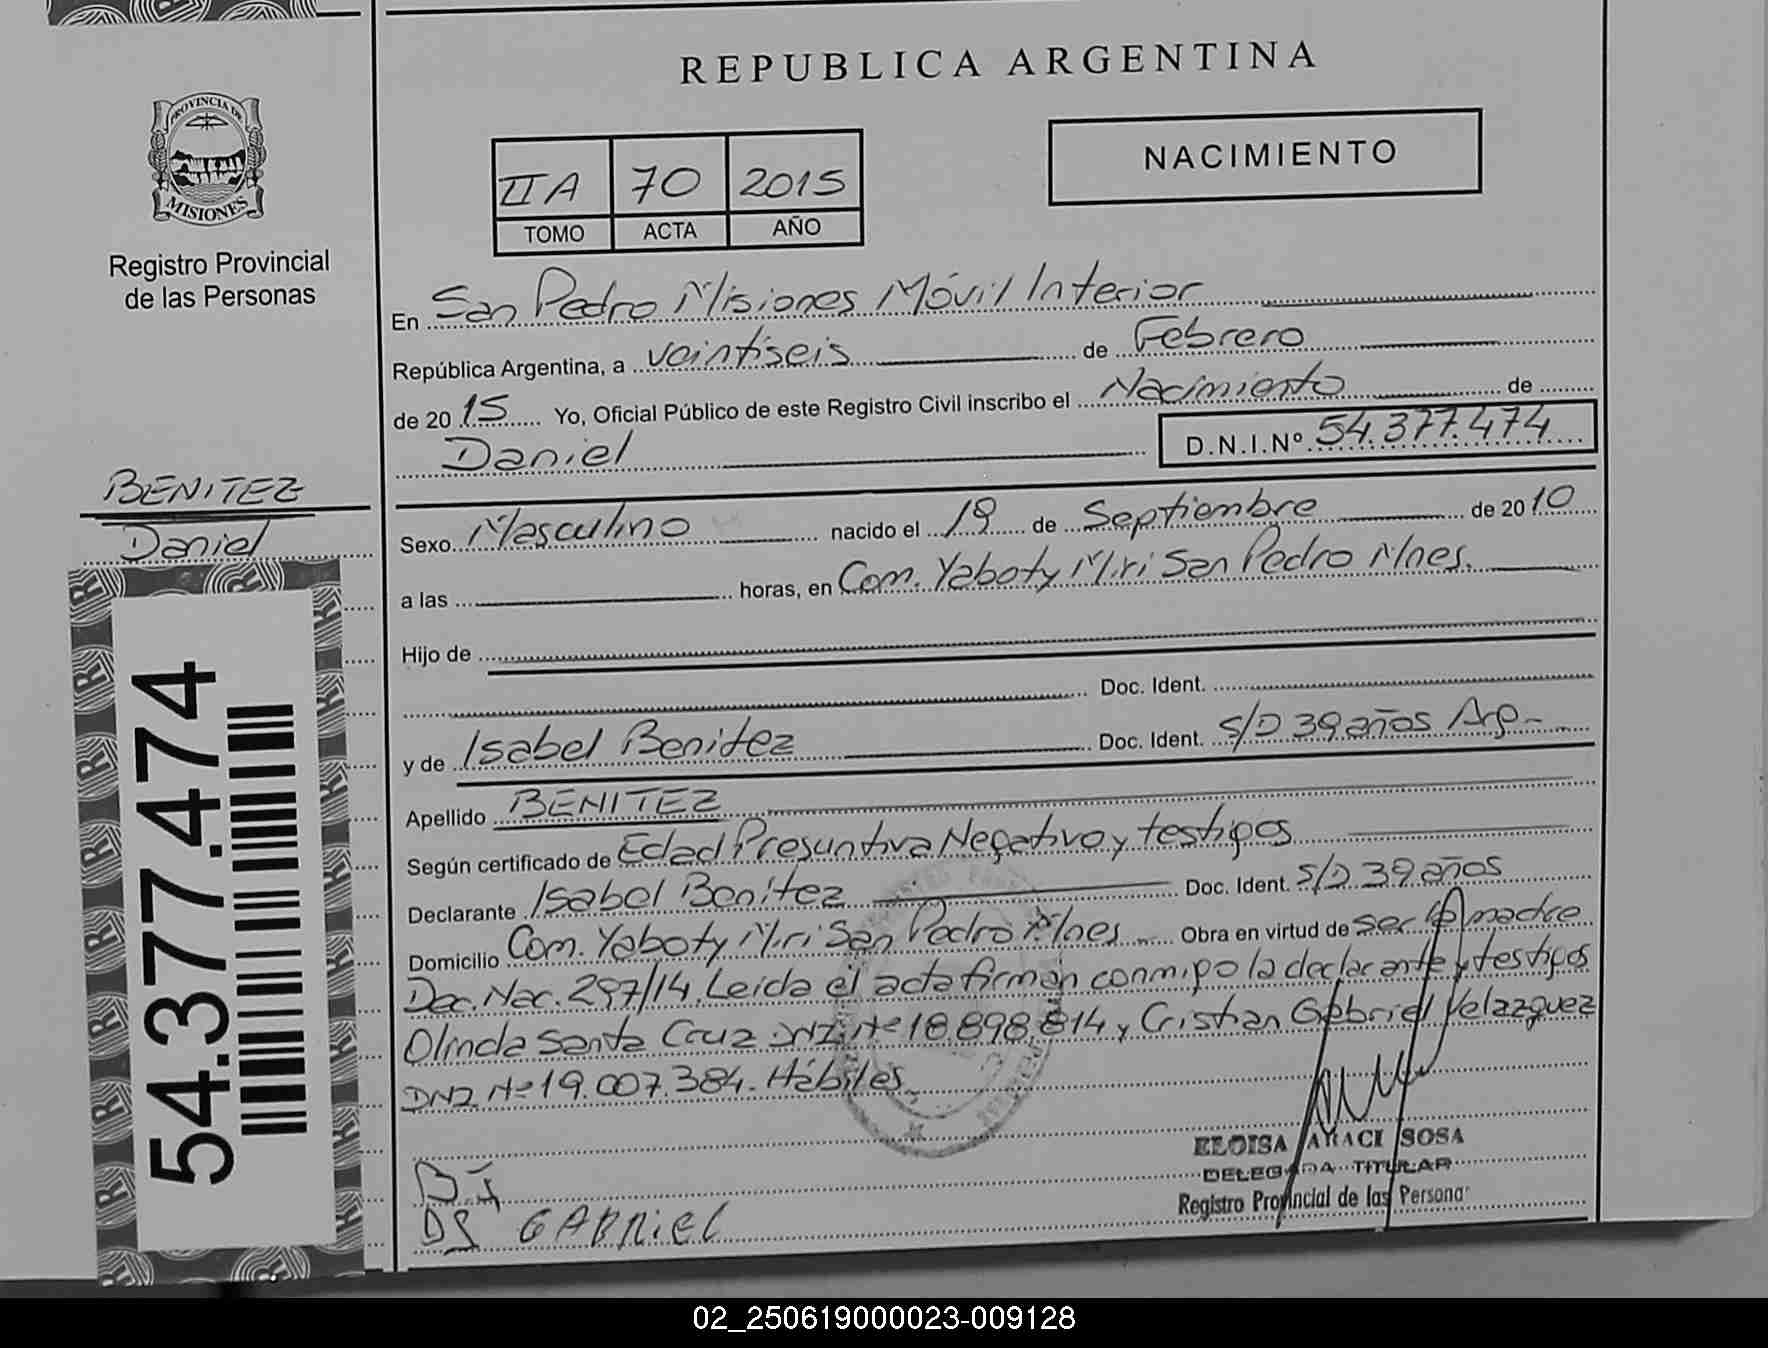 REPUBLICA ARGENTINA
PROVINCIA DE
MISIONES
Registro Provincial
de las Personas
IIA 70 2015
TOMO ACTA AÑO
NACIMIENTO
En San Pedro Misiones Móvil Interior
República Argentina, a veintiseis de Febrero
de 2015 Yo, Oficial Público de este Registro Civil inscribo el Nacimiento de
Daniel D.N.I.Nº 54.377.474
BENITEZ
Daniel
Sexo Masculino nacido el 19 de Septiembre de 2010
a las horas, en Com. Yaboty Miri San Pedro Mnes.
Hijo de
Doc. Ident.
y de Isabel Benitez Doc. Ident. S/D 39 años Arg.-
Apellido BENITEZ
Según certificado de Edad Presuntiva Negativo y testigos
Declarante Isabel Benitez Doc. Ident. S/D 39 años
Domicilio Com. Yaboty Miri San Pedro Mnes Obra en virtud de ser la madre
Dec. Nac. 297/14. Leida el acta firman conmigo la declarante y testigos
Olinda Santa Cruz DNI Nº 18.898.814 y Cristian Gabriel Velazquez
DNI Nº 19.007.384. Hábiles
54.377.474
ELOISA ARACI SOSA
DELEGADA TITULAR
Registro Provincial de las Personas
GABRIEL
02_250619000023-009128